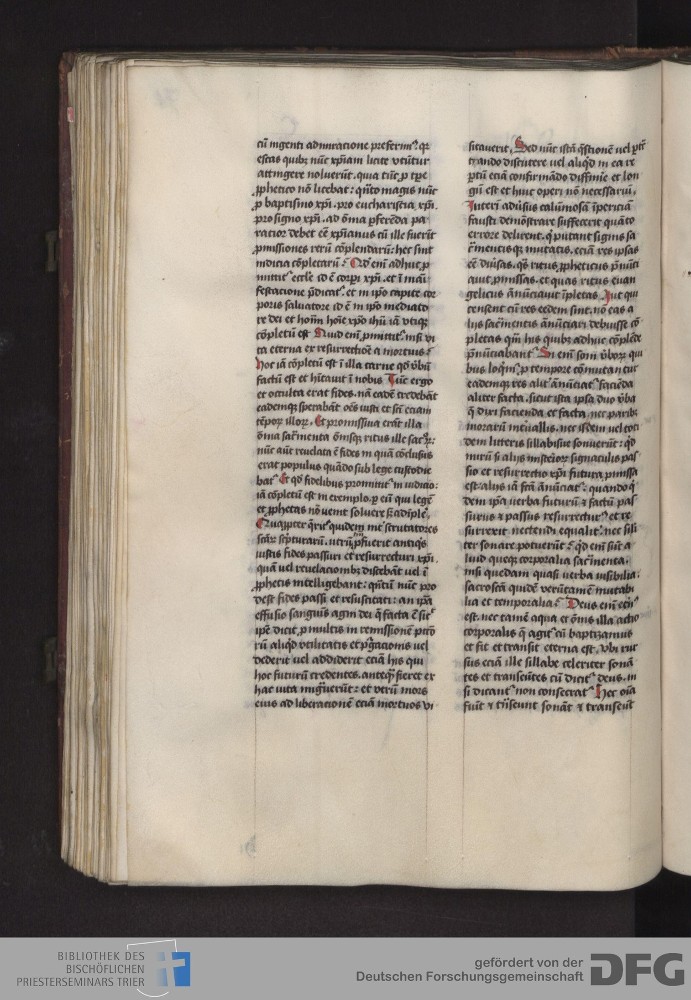 cū ingenti admiratione preferim⁹. qꝛ
escas quibꝫ nūc xp̄iani licite vtūtur
attingere noluerūt. quia tūc ꝓ tꝑe
ꝓphetico nō licebat: q̄nto magis nūc
ꝓ baptismo xp̄i. ꝓ eucharistia xp̄i.
ꝓ signo xp̄i. ad om̄ia ꝑferēda pa
ratior debet ēē xp̄ianus cū ille fuerīt
ꝓmissiones rerū cōplendarū: hec sint
indicia cōpletarū
mittit᷑ eccl̄e id ē corpi xp̄i. et ī
festatione p̄dicat᷑. et in ip̄o capite cor
poris saluatore id ē in ip̄o mediato
re dei et hoīm hoīe xp̄o ihū iā vtiqꝫ
cōpletū est Quid em̄ ꝓmittit᷑ nisi vi
ta eterna ex resurrectiōe a mortuis
hoc iā cōpletū est ī illa carne qd̄ v̄bū
factū est et hītauit ī nobis Tūc ergo
et occulta erat fides. nā eadē credebāt
eademqꝫ sperabāt oēs iusti et scī eciam
tēpoꝝ illoꝝ. Et ꝓmissiua erāt illa
om̄ia sacr̄menta om̄isqꝫ ritus ille sacroꝝ:
nūc aūt reuelata ē fides in quā cōclusus
erat populus quādo sub lege custodie
bat᷑ Et qd̄ fidelibus promittit᷑ in iudicio:
iā cōpletū est in exemplo. ꝑ eū qui legē
et ꝓphetas nō venit soluere s̄ adīple᷑.
Querit᷑ quidem int̄ scrutatores
scāꝝ sc̄pturarū. vtrū ꝓfuerit antiqs
iustis fides passuri et resurrecturi xp̄i.
quā vel reuelacionibꝫ discebāt vel ī
ꝓphetis intelligebant: q̄ntū nūc pro
dest fides passi et resuscitati: an ip̄a
effusio sanguīs agni dei q̄ facta ē sic᷑
ip̄e dicit ꝓ multis in remissionē pctō
rū aliqd̄ vtilitatis et p̄gacionis vel
dederit vel addiderit eciā hys qui
hoc futurū credentes. anteqꝫ fieret ex
hac vita migrauerūt: et verū mors
eius ad liberacionē eciā mortuos vi
sitauerit, Sed nūc istā q̄stionē uel
tractando discutere uel aliqd̄ in ea re
ꝑtū eciā confirmādo diffinīe et lon
gū est et huic operi nō necessariū.
Interī aduersus calumniosā īpericiā
fausti demōstrare suffecerit quāto
errore delirent. q̄ putant signis sa
cr̄mentisqꝫ mutatis. eciā res ipsas
ēē diūsas. q̄s ritus ꝓpheticus p̄nūci
auit ꝓmissas. et quas ritus euan
gelicus ānūciauit īpletas. Aut qui
censent cū res eedem sint. nō eas a
lys sacr̄mentis ānūciari debuisse cō
pletas q̄m hys quibꝫ adhuc cōplēde
p̄nūciabant᷑ Si em̄ soni v̄boꝝ qui
bus loq̄m᷑ ꝓ tempore cōmutantur
eademqꝫ res alit᷑ ānūciat᷑ faciēda
aliter facta. sicut ista ipsa duo v̄ba
q̄ dixi facienda et facta nec paribꝫ
morarū int̄uallis. nec isdem vel toti
dem litteris sillabisue sonuerūt: qd̄
mirū si alys misterioꝝ signaculis pas
sio et resurrectio xp̄i futura ꝓmissa
est. alys iā facta ānūciat᷑: quandoq̄
dem ip̄a verba futurū et factū pas
surus et passus resurrectur᷑ et re
surrexit nec tendi equalit᷑. nec sili
ter sonare potuerūt: qd̄ em̄ sūt a
liud queqꝫ corporalia sacr̄menta.
nisi quedam quasi verba uisibilia.
sacrosctā quidē verūtamē mutabi
lia et temporalia Deus em̄ etn᷑
est. nec tamē aqua et om̄is illa actio
corporalis q̄ agit᷑ cū baptizamus
et fit et transit eterna est. vbi rur
sus eciā ille sillabe celeriter sonā
tes et transeūtes cū dicit᷑ deus. ni
si dicant᷑ non consecrat᷑ Hec oīa
fiūt et tn̄seunt sonāt et transeūt
BIBLIOTHEK DES
BISCHÖFLICHEN
PRIESTERSEMINARS TRIER
gefördert von der
Deutschen Forschungsgemeinschaft
DFG